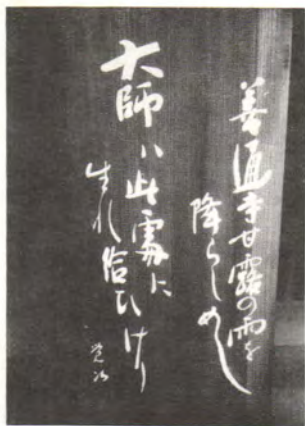 善通寺甘露の雨を
降らしめし
大師ハ此處に
生れ給ひけり
覚次